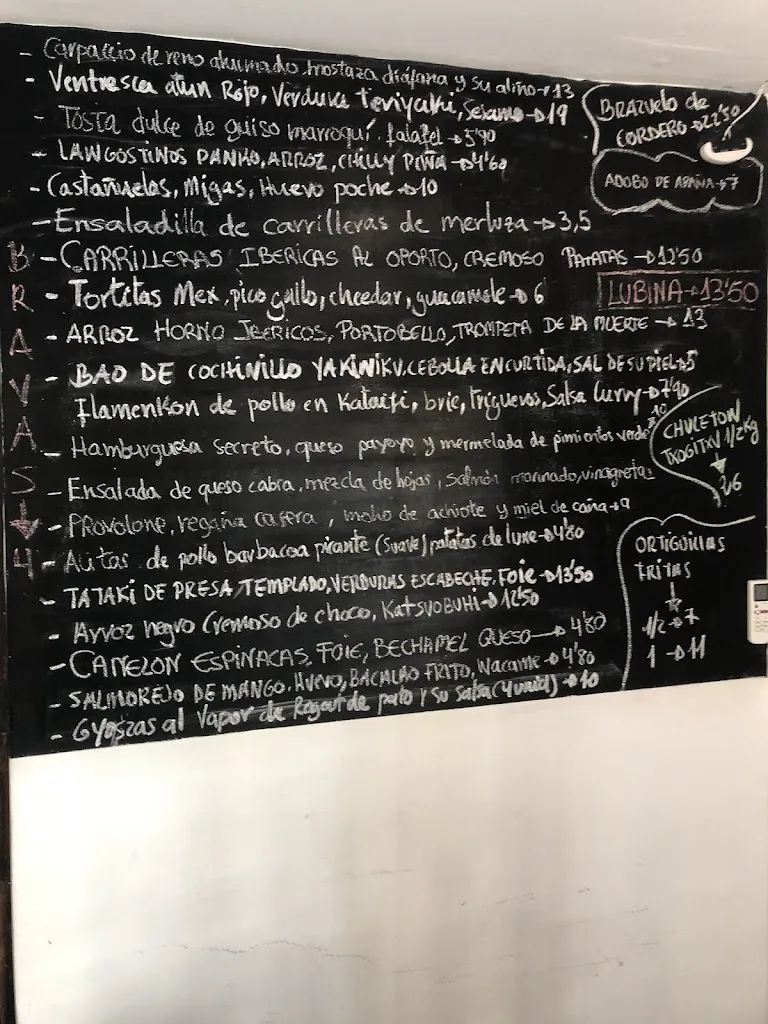 - Carpaccio de reno ahumado, mostaza diáfana y su aliño → 13
- Ventresca atún Rojo, Verdura Teriyaki, Sesamo → 19
- Tosta dulce de guiso marroquí, falafel → 5'90
- LANGOSTINOS PANKO, ARROZ, CHILLY PIÑA → 4'60
- Castañuelas, Migas, Huevo poche → 10
- Ensaladilla de carrilleras de merluza → 3,5
- CARRILLERAS IBERICAS AL OPORTO, CREMOSO PATATAS → 12'50
- Tortitas Mex, pico gallo, cheedar, guacamole → 6
- ARROZ HORNO IBERICOS, PORTOBELLO, TROMPETA DE LA MUERTE → 13
- BAO DE COCHINILLO YAKINIKU, CEBOLLA ENCURTIDA, SAL DE SU PIEL → 5
Flamenkon de pollo en Kataifi, brie, trigueros, Salsa Curry → 7'90
- Hamburguesa secreto, queso payoyo y mermelada de pimientos verde 10
- Ensalada de queso cabra, mezcla de hojas, salmón marinado, vinagreta
- Provolone, regaña casera, mojo de achiote y miel de caña → 9
- Alitas de pollo barbacoa picante (suave) patatas de luxe → 4'80
- TATAKI DE PRESA, TEMPLADO, VERDURAS ESCABECHE, FOIE → 13'50
- Arroz negro Cremoso de choco, KATSUOBUHI → 12'50
- CANELON ESPINACAS, FOIE, BECHAMEL QUESO → 4'80
- SALMOREJO DE MANGO, HUEVO, BACALAO FRITO, Wacame → 4'80
- Gyoszas al Vapor de Ragout de pato y su Salsa (4 unid) → 10
BRAVAS → 4
BRAZUELO de
CORDERO → 22'50
ADOBO DE → 7
LUBINA → 13'50
CHULETON
TXOGITXU 1/2 Kg
↓
26
ORTIGUILLAS
FRITAS
↓
1/2 → 7
1 → 11